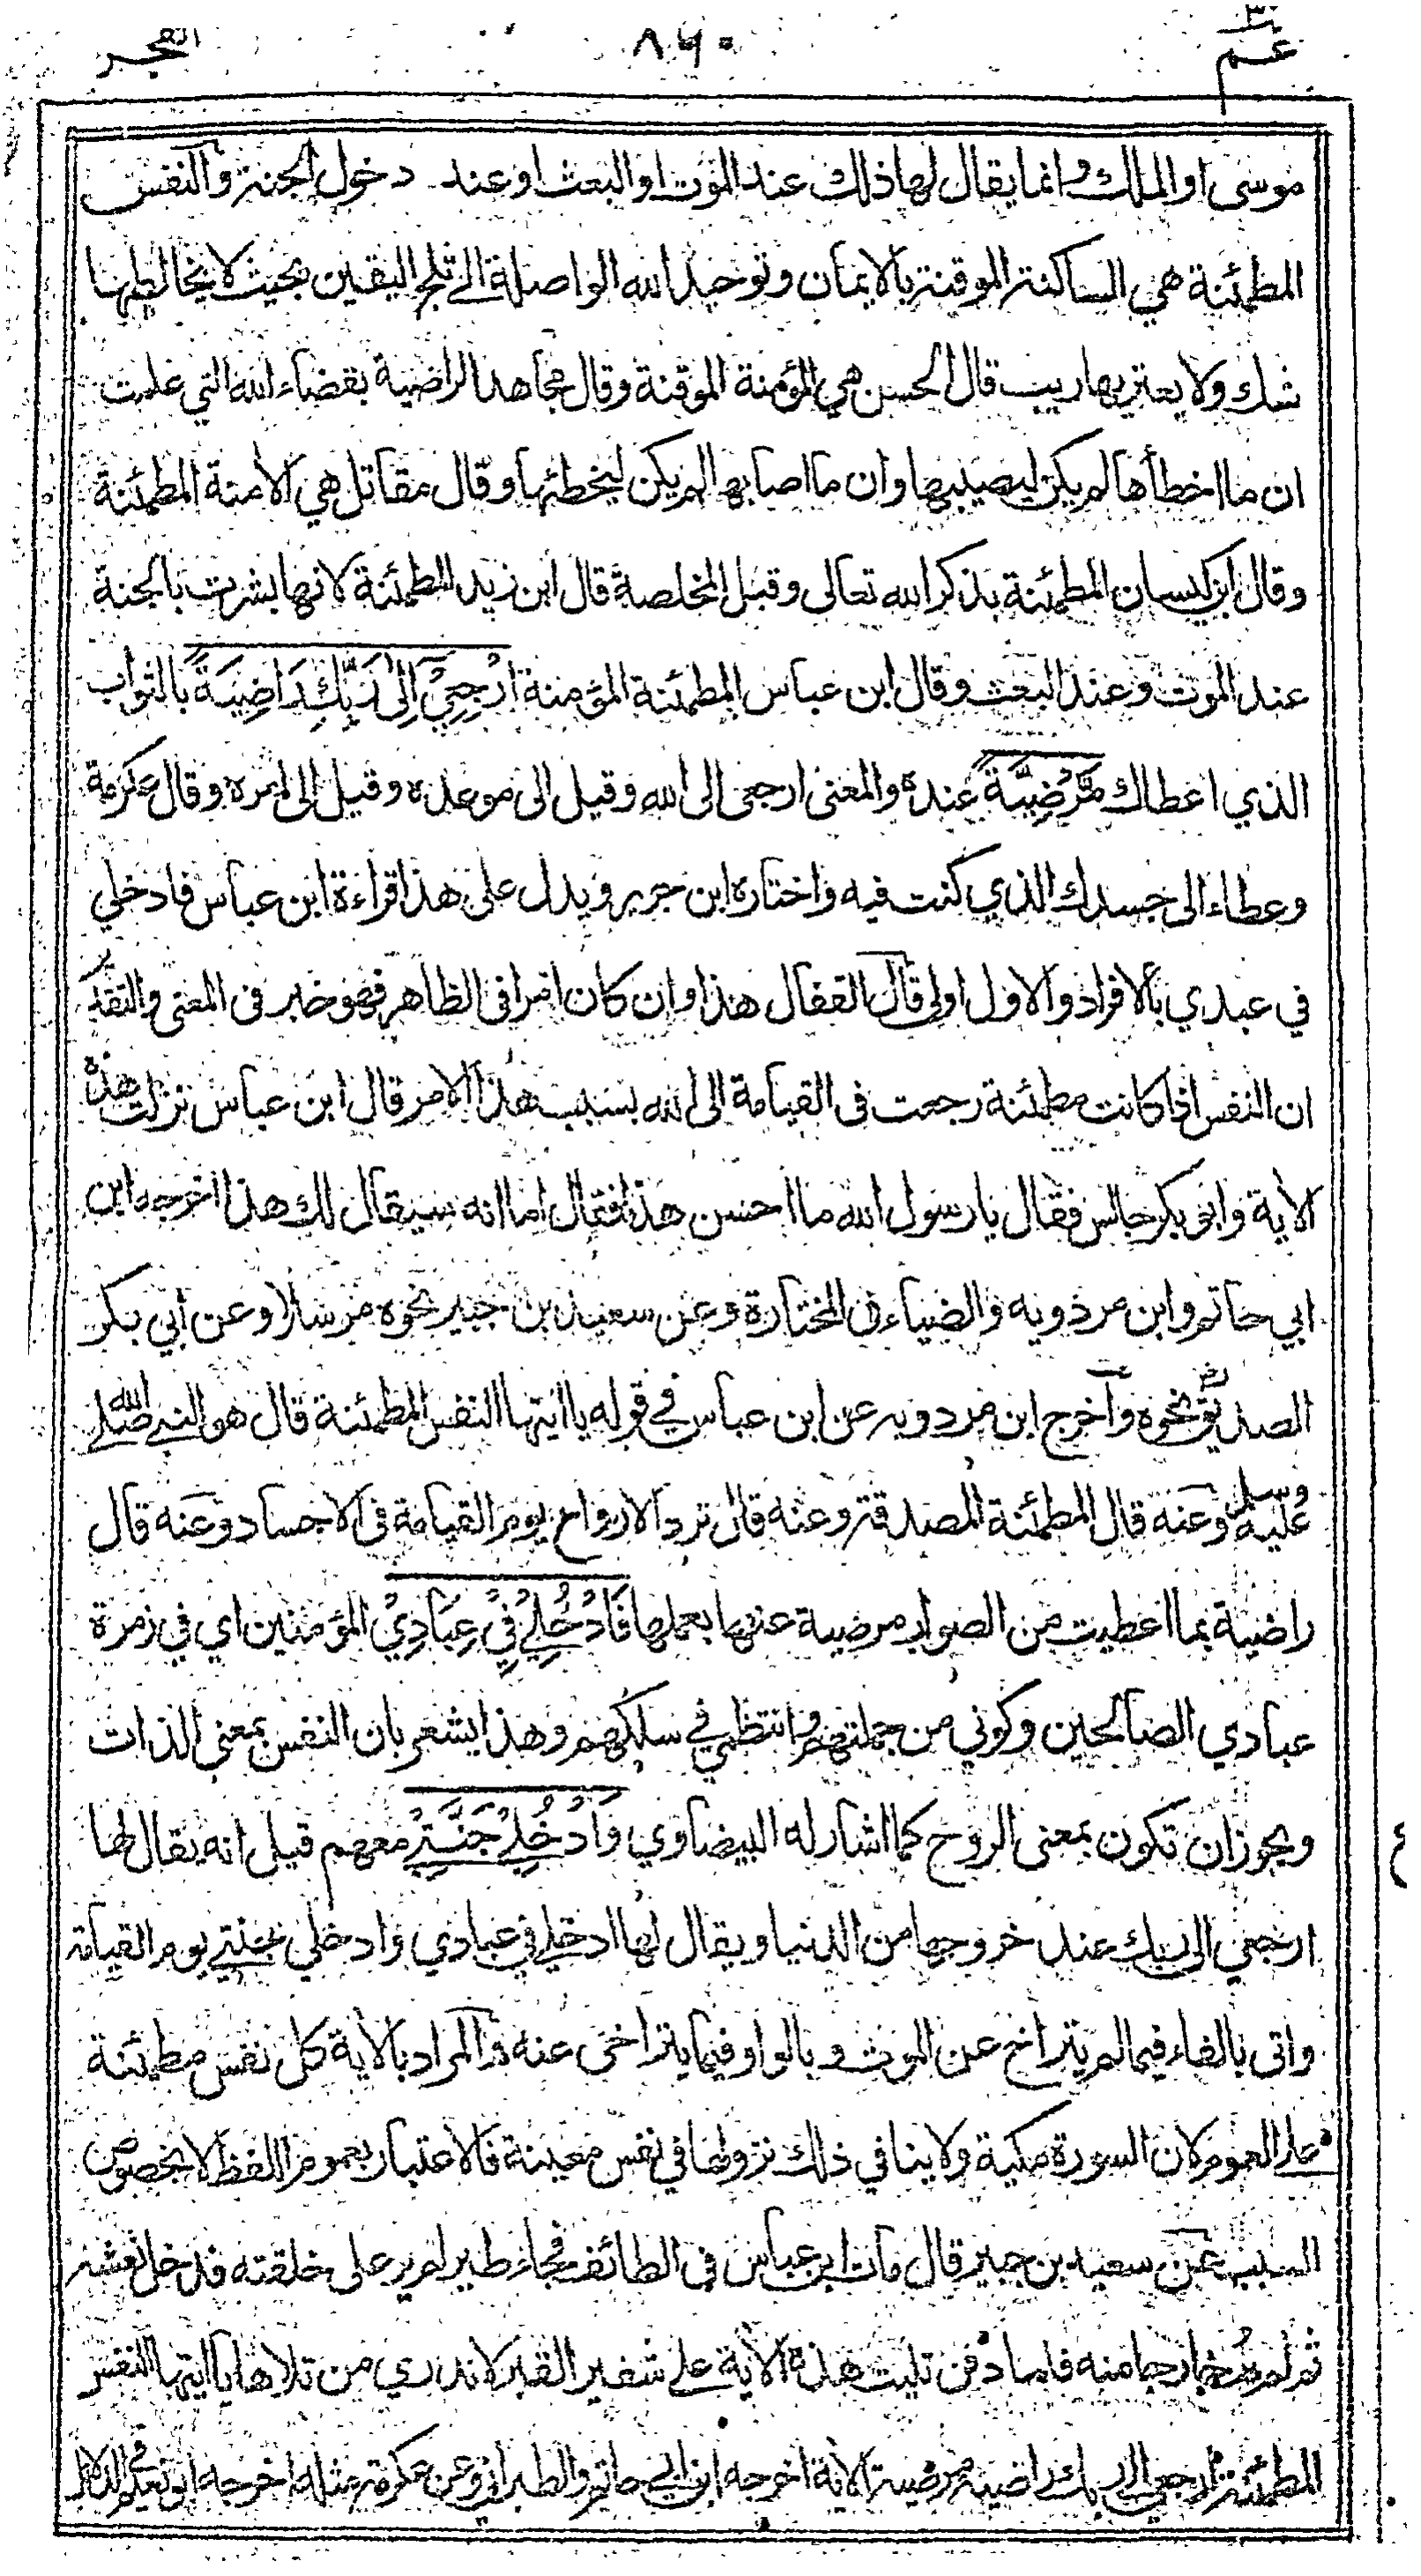 عم ٣٠
٨٦٠
الفجر
موسى او الملك وانما يقال لها ذلك عند الموت او البعث او عند دخول الجنة والنفس
المطمئنة هي الساكنة الموقنة بالايمان وتوحيد الله الواصلة الى ثلج اليقين بحيث لا يخالطها
شك ولا يعتريها ريب قال الحسن هي المؤمنة الموقنة وقال مجاهد الراضية بقضاء الله التي علمت
ان ما اخطأها لم يكن ليصيبها وان ما اصابها لم يكن ليخطئها وقال مقاتل هي الامنة المطمئنة
وقال ابن كيسان المطمئنة بذكر الله تعالى وقيل المخلصة قال ابن زيد المطمئنة لانها بشرت بالجنة
عند الموت وعند البعث وقال ابن عباس المطمئنة المؤمنة ارْجِعِيْ اِلٰى رَبِّكِ رَاضِيَةً بالثواب
الذي اعطاك مَّرْضِيَّةً عنده والمعنى ارجعي الى الله وقيل الى موعده وقيل الى امره وقال عكرمة
وعطاء الى جسدك الذي كنت فيه واختاره ابن جرير ويدل على هذا قراءة ابن عباس فادخلي
في عبدي بالافراد والاول اولى قال القفال هذا وان كان امرا في الظاهر فهو خبر في المعنى والتقدير
ان النفس اذا كانت مطمئنة رجعت في القيامة الى الله بسبب هذا الامر قال ابن عباس نزلت هذه
الاية وابو بكر جالس فقال يا رسول الله ما احسن هذا فقال اما انه سيقال لك هذا اخرجه ابن
ابي حاتم وابن مردويه والضياء في المختارة وعن سعيد بن جبير نحوه مرسلا وعن ابي بكر
الصديق رض نحوه وآخرج ابن مردويه عن ابن عباس في قوله يا ايتها النفس المطمئنة قال هو النبي صلى الله
عليه وسلم وعنه قال المطمئنة المصدقة وعنه قال ترد الارواح يوم القيامة في الاجساد وعنه قال
راضية بما اعطيت من الثواب مرضية عنها بعملها فَادْخُلِيْ فِيْ عِبَادِيْ المؤمنين اي في زمرة
عبادي الصالحين وكوني من جملتهم وانتظمي في سلكهم وهذا يشعر بان النفس بمعنى الذات
ويجوز ان تكون بمعنى الروح كما اشار له البيضاوي وَادْخُلِيْ جَنَّتِيْ معهم قيل انه يقال لها
ارجعي الى ربك عند خروجها من الدنيا ويقال لها ادخلي في عبادي وادخلي جنتي يوم القيامة
واتى بالفاء فيما لم يتراخ عن الموت وبالواو فيما يتراخى عنه والمراد بالاية كل نفس مطمئنة
على العموم لان السورة مكية ولا ينافي ذلك نزولها في نفس معينة فالاعتبار بعموم اللفظ لا بخصوص
السبب عن سعيد بن جبير قال مات ابن عباس في الطائف فجاء طير لم ير على خلقته فدخل نعشه
ثم لم ير خارجا منه فلما دفن تليت هذه الاية على شفير القبر لا ندري من تلاها يا ايتها النفس
المطمئنة ارجعي الى ربك راضية مرضية الاية اخرجه ابن ابي حاتم والطبراني وعن عكرمة مثله اخرجه ابو نعيم في الدلائل
ع